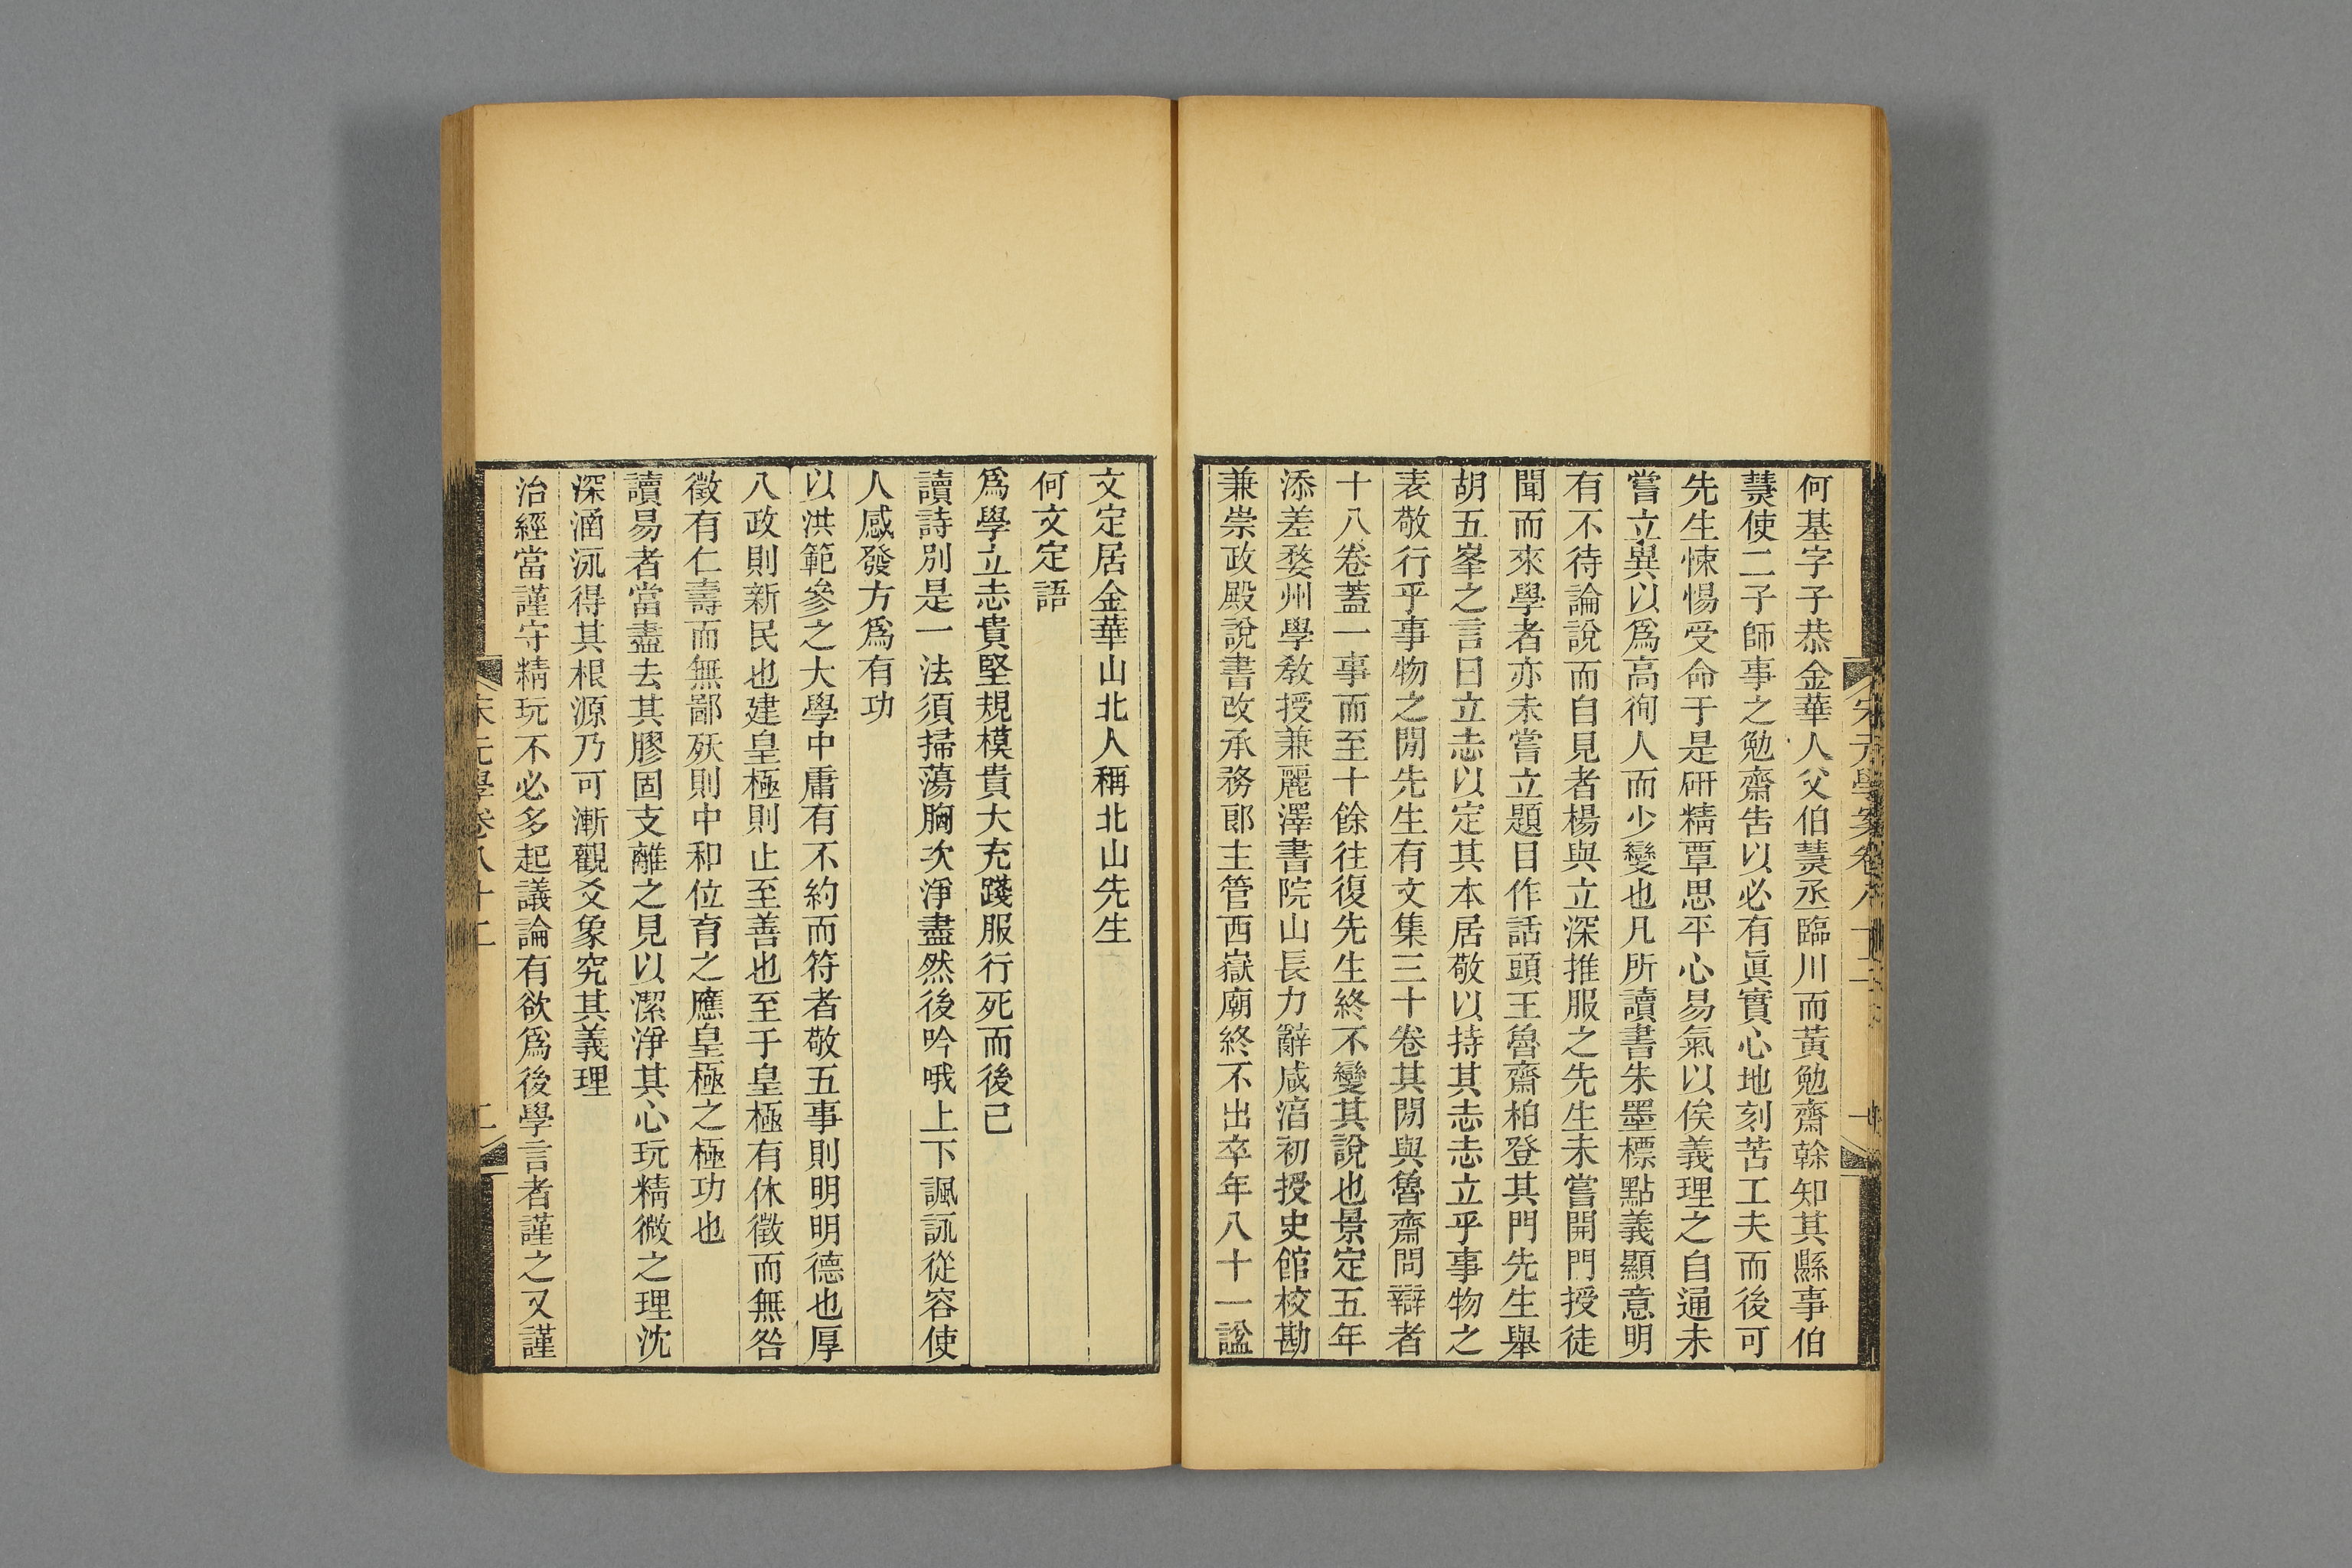 何基字子恭金華人父伯慧丞臨川而黃勉齋榦知其縣事伯
慧使二子師事之勉齋告以必有眞實心地刻苦工夫而後可
先生悚惕受命于是研精覃思平心易氣以俟義理之自通未
嘗立異以爲高徇人而少變也凡所讀書朱墨標點義顯意明
有不待論說而自見者楊與立深推服之先生未嘗開門授徒
聞而來學者亦未嘗立題目作話頭王魯齋柏登其門先生舉
胡五峯之言曰立志以定其本居敬以持其志志立乎事物之
表敬行乎事物之閒先生有文集三十卷其閒與魯齋問辯者
十八卷蓋一事而至十餘往復先生終不變其說也景定五年
添差婺州學教授兼麗澤書院山長力辭咸淳初授史館校勘
兼崇政殿說書改承務郎主管西嶽廟終不出卒年八十一謚
文定居金華山北人稱北山先生
何文定語
爲學立志貴堅規模貴大充踐服行死而後已
讀詩別是一法須掃蕩胸次淨盡然後吟哦上下諷詠從容使
人感發方爲有功
以洪範參之大學中庸有不約而符者敬五事則明明德也厚
八政則新民也建皇極則止至善也至于皇極有休徵而無咎
徵有仁壽而無鄙殀則中和位育之應皇極之極功也
讀易者當盡去其膠固支離之見以潔淨其心玩精微之理沈
深涵泳得其根源乃可漸觀爻象究其義理
治經當謹守精玩不必多起議論有欲爲後學言者謹之又謹